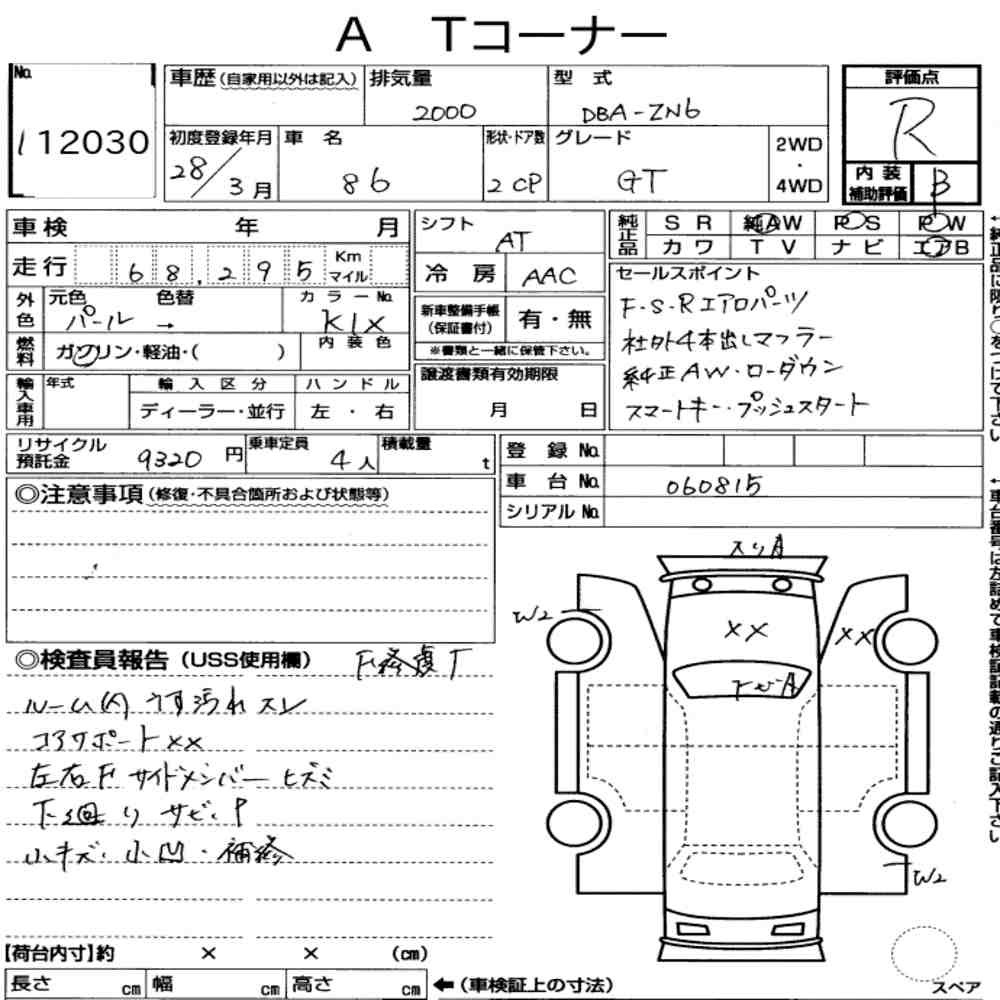 A Tコーナー
No.
112030
車歴(自家用以外は記入)
排気量
2000
型式
DBA-ZN6
評価点
R
初度登録年月
28/3月
車名
86
形状・ドア数
2 CP
グレード
GT
2WD
・
4WD
内装
補助評価
B
車検 年 月
走行 68,295 Km マイル
シフト
AT
冷房 AAC
純正品
SR 純AW PS PW
カワ TV ナビ エアB
外色
元色 色替
パール →
カラーNo.
K1X
内装色
燃料
ガソリン・軽油・( )
新車整備手帳
(保証書付)
有・無
※書類と一緒に保管下さい。
セールスポイント
F・S・Rエアロパーツ
社外4本出しマフラー
純正AW・ローダウン
スマートキー・プッシュスタート
輸入車用
年式
輸入区分
ディーラー・並行
ハンドル
左・右
譲渡書類有効期限
月 日
リサイクル
預託金
9320円
乗車定員
4人
積載量
t
登録No.
車台No.
060815
シリアルNo.
◎注意事項(修復・不具合箇所および状態等)
◎検査員報告(USS使用欄)
ルーム(内)うす汚れ スレ
コアサポートXX
左右F サイドメンバー ヒズミ
下回り サビ・P
小キズ・小凹・補修
スリA
W2
XX
XX
W2
スペア
【荷台内寸】約 × × (cm)
長さ cm 幅 cm 高さ cm
←(車検証上の寸法)
←純正品に限り○をつけて下さい
←車台番号は左詰めで車検証記載の通りご記入下さい